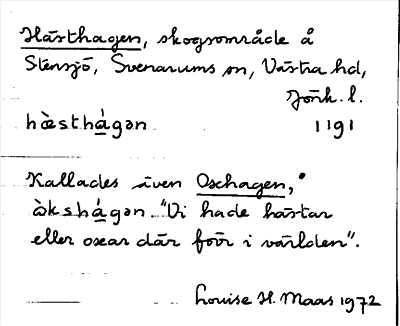 Hästhagen, skogsområde å
Stensjö, Svenarums sn, Västra hd,
Jönk. l.
hæ̀sthá̱gən 1191
Kallades även Oxhagen,
òkshá̱gən. "Vi hade hästar
eller oxar där förr i världen".
Louise H. Maas 1972